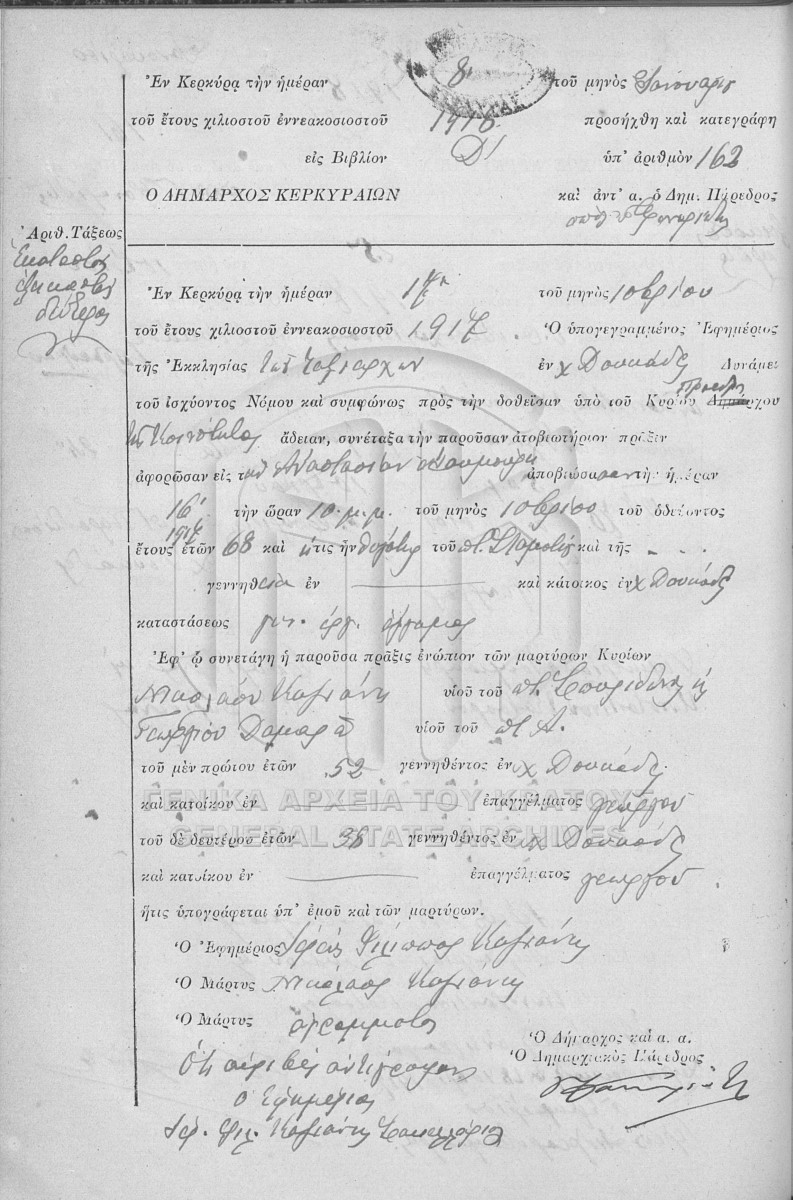 Ἐν Κερκύρᾳ τὴν ἡμέραν 8 τοῦ μηνὸς Ἰανουαρίου
τοῦ ἔτους χιλιοστοῦ ἐννεακοσιοστοῦ 1918 προσήχθη καὶ κατεγράφη
εἰς Βιβλίον Δ' ὑπ' ἀριθμὸν 162
Ο ΔΗΜΑΡΧΟΣ ΚΕΡΚΥΡΑΙΩΝ καὶ ἀντ' α. ὁ Δημ. Πάρεδρος
Ἀριθ. Τάξεως
Ἑκατοστὸς
ἑξηκοστὸς
δεύτερος
Ἐν Κερκύρᾳ τὴν ἡμέραν 17ην τοῦ μηνὸς 10βρίου
τοῦ ἔτους χιλιοστοῦ ἐννεακοσιοστοῦ 1917 Ὁ ὑπογεγραμμένος Ἐφημέριος
τῆς Ἐκκλησίας τῶν Ταξιαρχῶν ἐν χ Δουκάδες Δυνάμει
τοῦ ἰσχύοντος Νόμου καὶ συμφώνως πρὸς τὴν δοθεῖσαν ὑπὸ τοῦ Κυρίου Δημάρχου Προέδρου
τῆς Κοινότητος ἄδειαν, συνέταξα τὴν παροῦσαν ἀποβιωτήριον πρᾶξιν
ἀφορῶσαν εἰς τὴν Ἀναστασίαν ἀποβιώσασαν τὴν ἡμέραν
16 τὴν ὥραν 10 μ.μ. τοῦ μηνὸς 10βρίου τοῦ ὁδεύοντος
1917
ἔτους ἐτῶν 68 καὶ ἥτις ἦν θυγάτηρ τοῦ ποτ. Σταματίου καὶ τῆς - -
γεννηθεῖσα ἐν — καὶ κάτοικος ἐν χ Δουκάδες
καταστάσεως ἔγγαμος
Ἐφ' ᾧ συνετάγη ἡ παροῦσα πρᾶξις ἐνώπιον τῶν μαρτύρων Κυρίων
Νικολάου Κοψιάυτη υἱοῦ τοῦ ποτ. Σπυρίδωνος ἢ
Γεωργίου Δαμασᾶ υἱοῦ τοῦ ποτ. Α.
τοῦ μὲν πρώτου ἐτῶν 52 γεννηθέντος ἐν χ Δουκάδες
καὶ κατοίκου ἐν — ἐπαγγέλματος γεωργοῦ
ΓΕΝΙΚΑ ΑΡΧΕΙΑ ΤΟΥ ΚΡΑΤΟΥΣ
GENERAL STATE ARCHIVES
τοῦ δὲ δευτέρου ἐτῶν 38 γεννηθέντος ἐν χ Δουκάδες
καὶ κατοίκου ἐν — ἐπαγγέλματος γεωργοῦ
ἥτις ὑπογράφεται ὑπ' ἐμοῦ καὶ τῶν μαρτύρων.
Ὁ Ἐφημέριος Ἱερεὺς Φίλιππος
Ὁ Μάρτυς Νικόλαος
Ὁ Μάρτυς ἀγράμματος
Ὁ Δήμαρχος καὶ α. α.
Ὁ Δημαρχιακὸς Πάρεδρος
Ὅτι ἀκριβὲς ἀντίγραφον
ὁ Ἐφημέριος
Ἱερ. Φιλ. Σακελλάριος